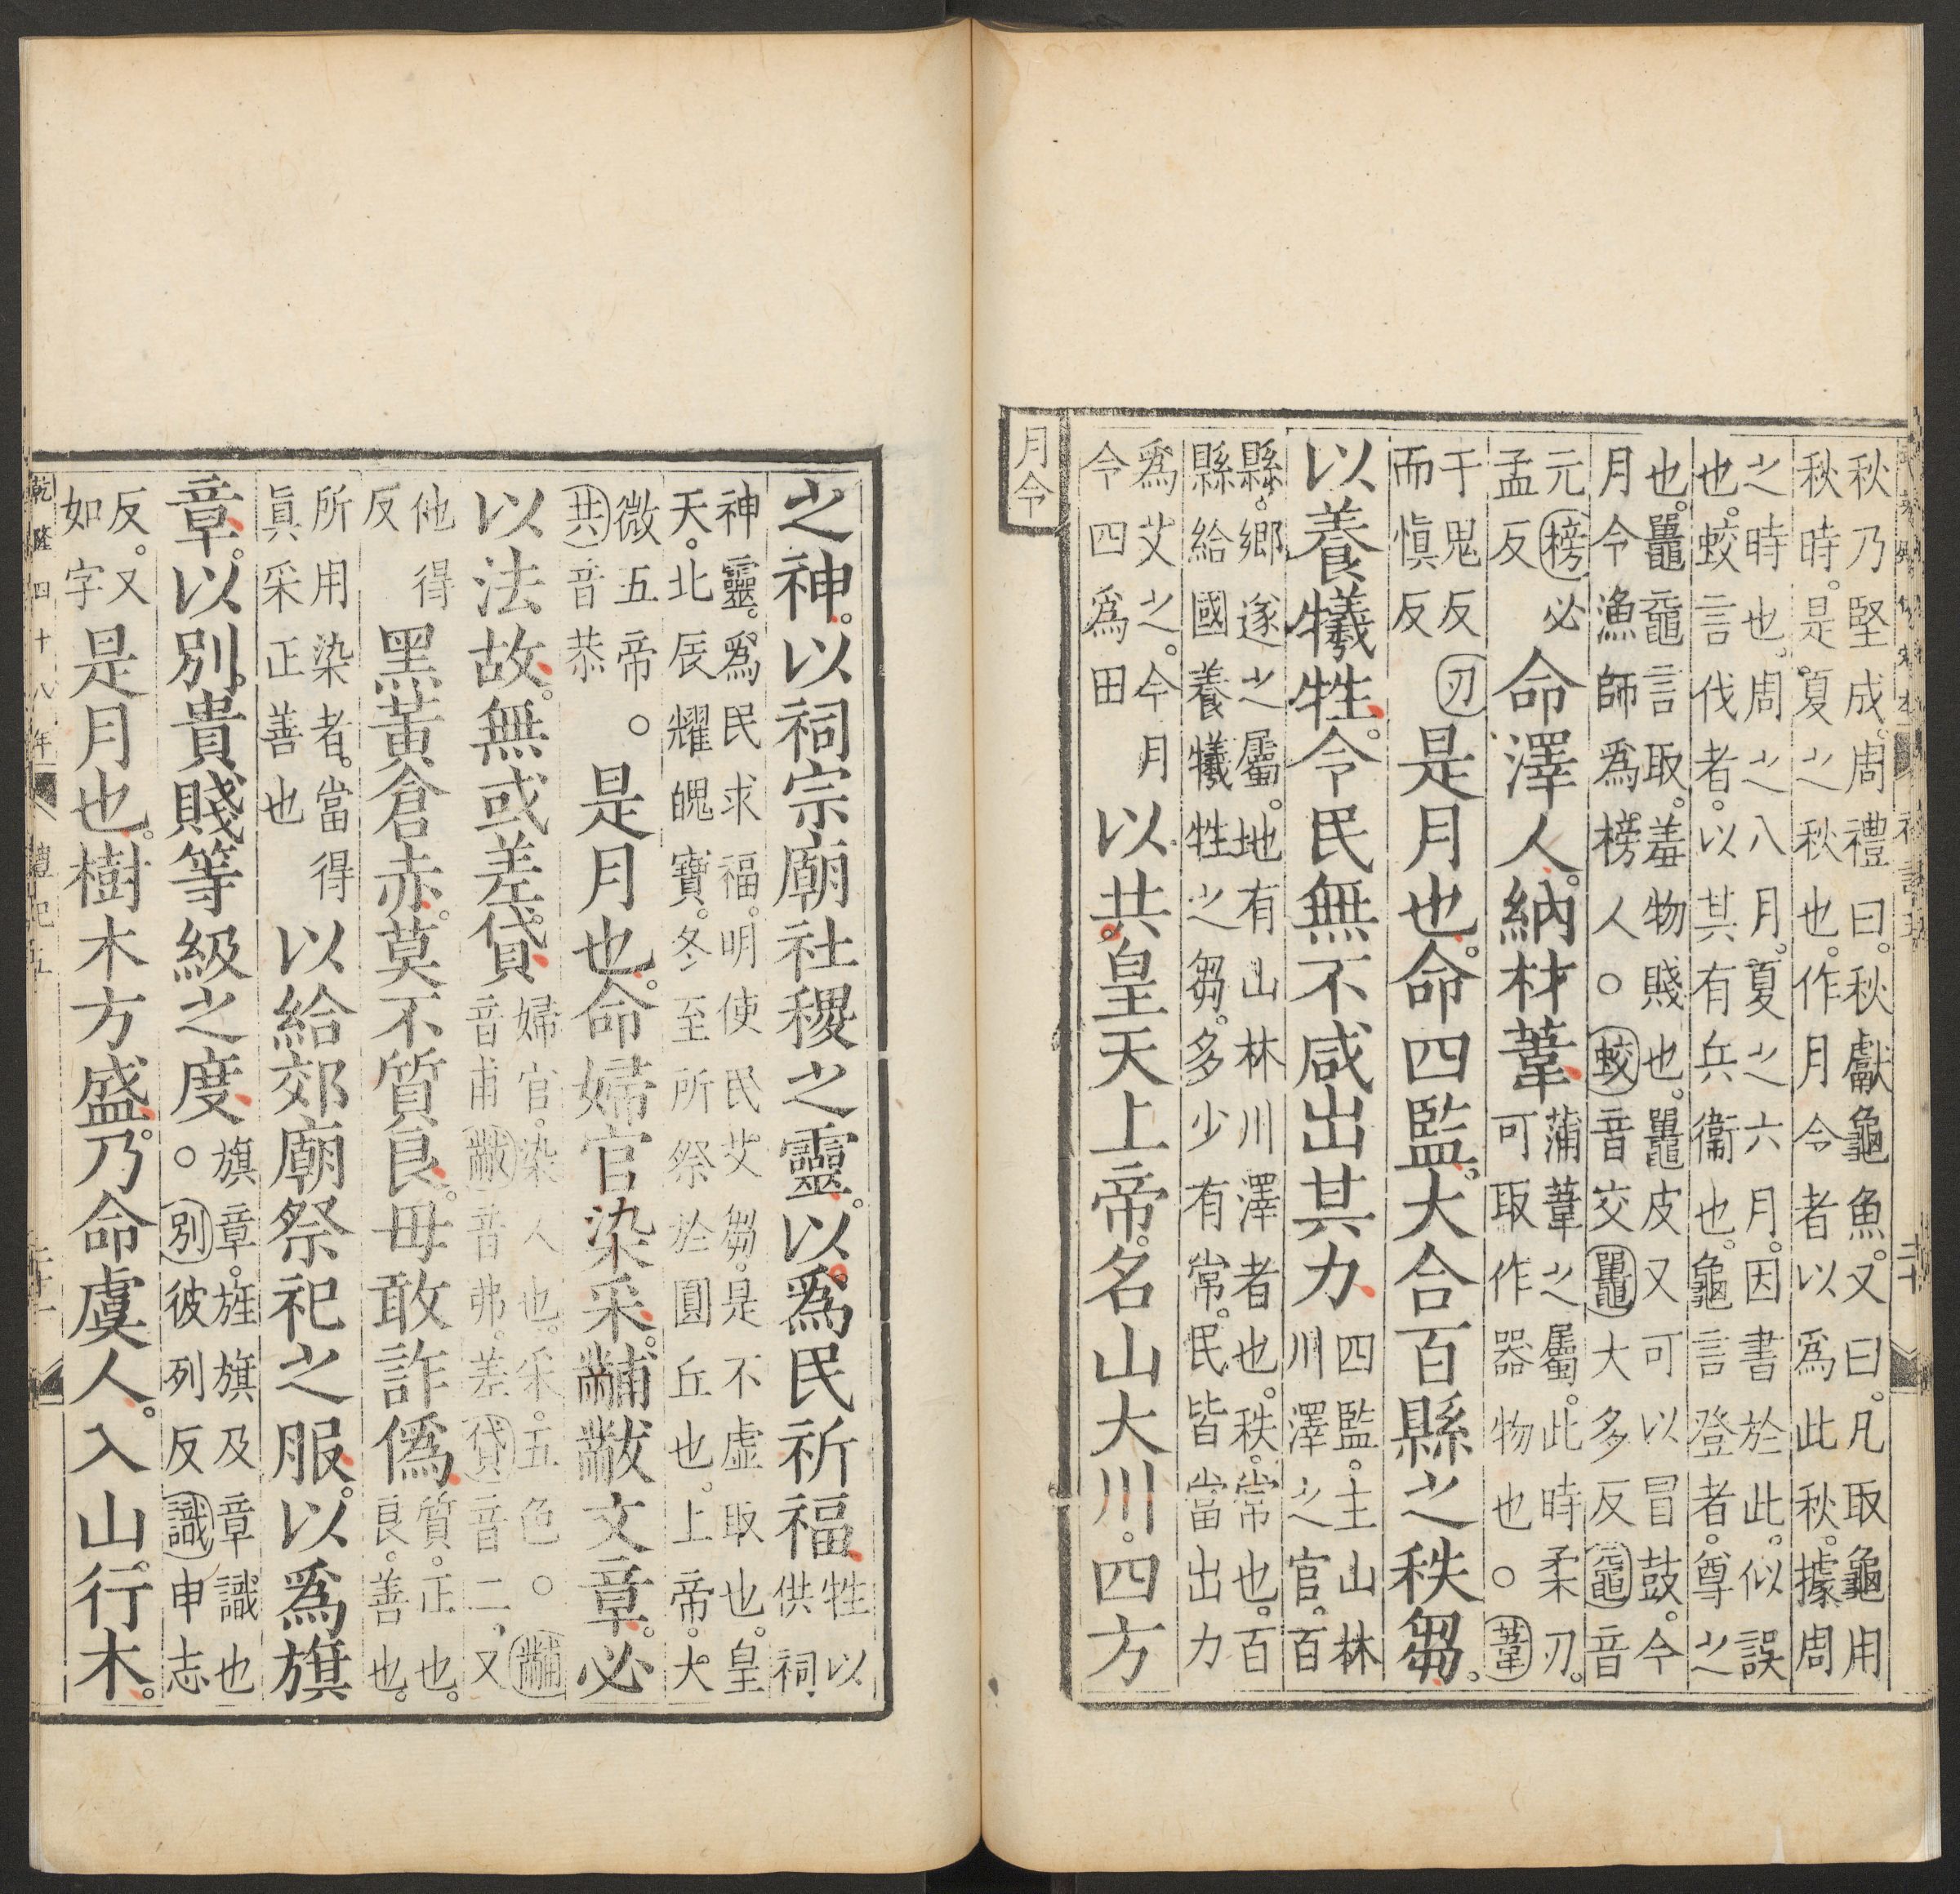 秋乃堅成。周禮曰。秋獻龜魚。又曰。凡取龜用
秋時。是夏之秋也。作月令者以爲此秋。據周
之時也。周之八月。夏之六月。因書於此。似誤
也。蛟言伐者。以其有兵衞也。龜言登者。尊之
也。鼉黿言取。羞物賤也。鼉皮又可以冒鼓。今
月令漁師爲榜人。○蛟音交鼉大多反黿音
元榜必
孟反
命澤人。納材葦
蒲葦之屬。此時柔刃。
可取作器物也○葦
于鬼反刃
而愼反
是月也。命四監。大合百縣之秩芻。
以養犧牲。令民無不咸出其力
四監。主山林
川澤之官。百
縣。鄉遂之屬。地有山林川澤者也。秩。常也。百
縣給國養犧牲之芻。多少有常。民皆當出力
爲艾之。今月
令四爲田
以共皇天上帝。名山大川。四方
月令
之神。以祠宗廟社稷之靈。以爲民祈福
牲以
供祠
神靈。爲民求福。明使民艾芻。是不虛取也。皇
天。北辰耀魄寶。冬至所祭於圓丘也。上帝。大
微五帝。
共音恭○
是月也。命婦官染采。黼黻文章。必
以法故。無或差貸
婦官。染人也。采。五色。○黼
音甫黻音弗。差貸音二,又
他得
反
黑黃倉赤。莫不質良。毋敢詐僞
質。正也。
良。善也。
所用染者。當得
眞采正善也
以給郊廟祭祀之服。以爲旗
章。以別貴賤等級之度。
旗章。旌旗及章識也
○別彼列反識申志
反。又
如字
是月也。樹木方盛。乃命虞人。入山。行木。
乾隆四十八年
禮記五
二十一